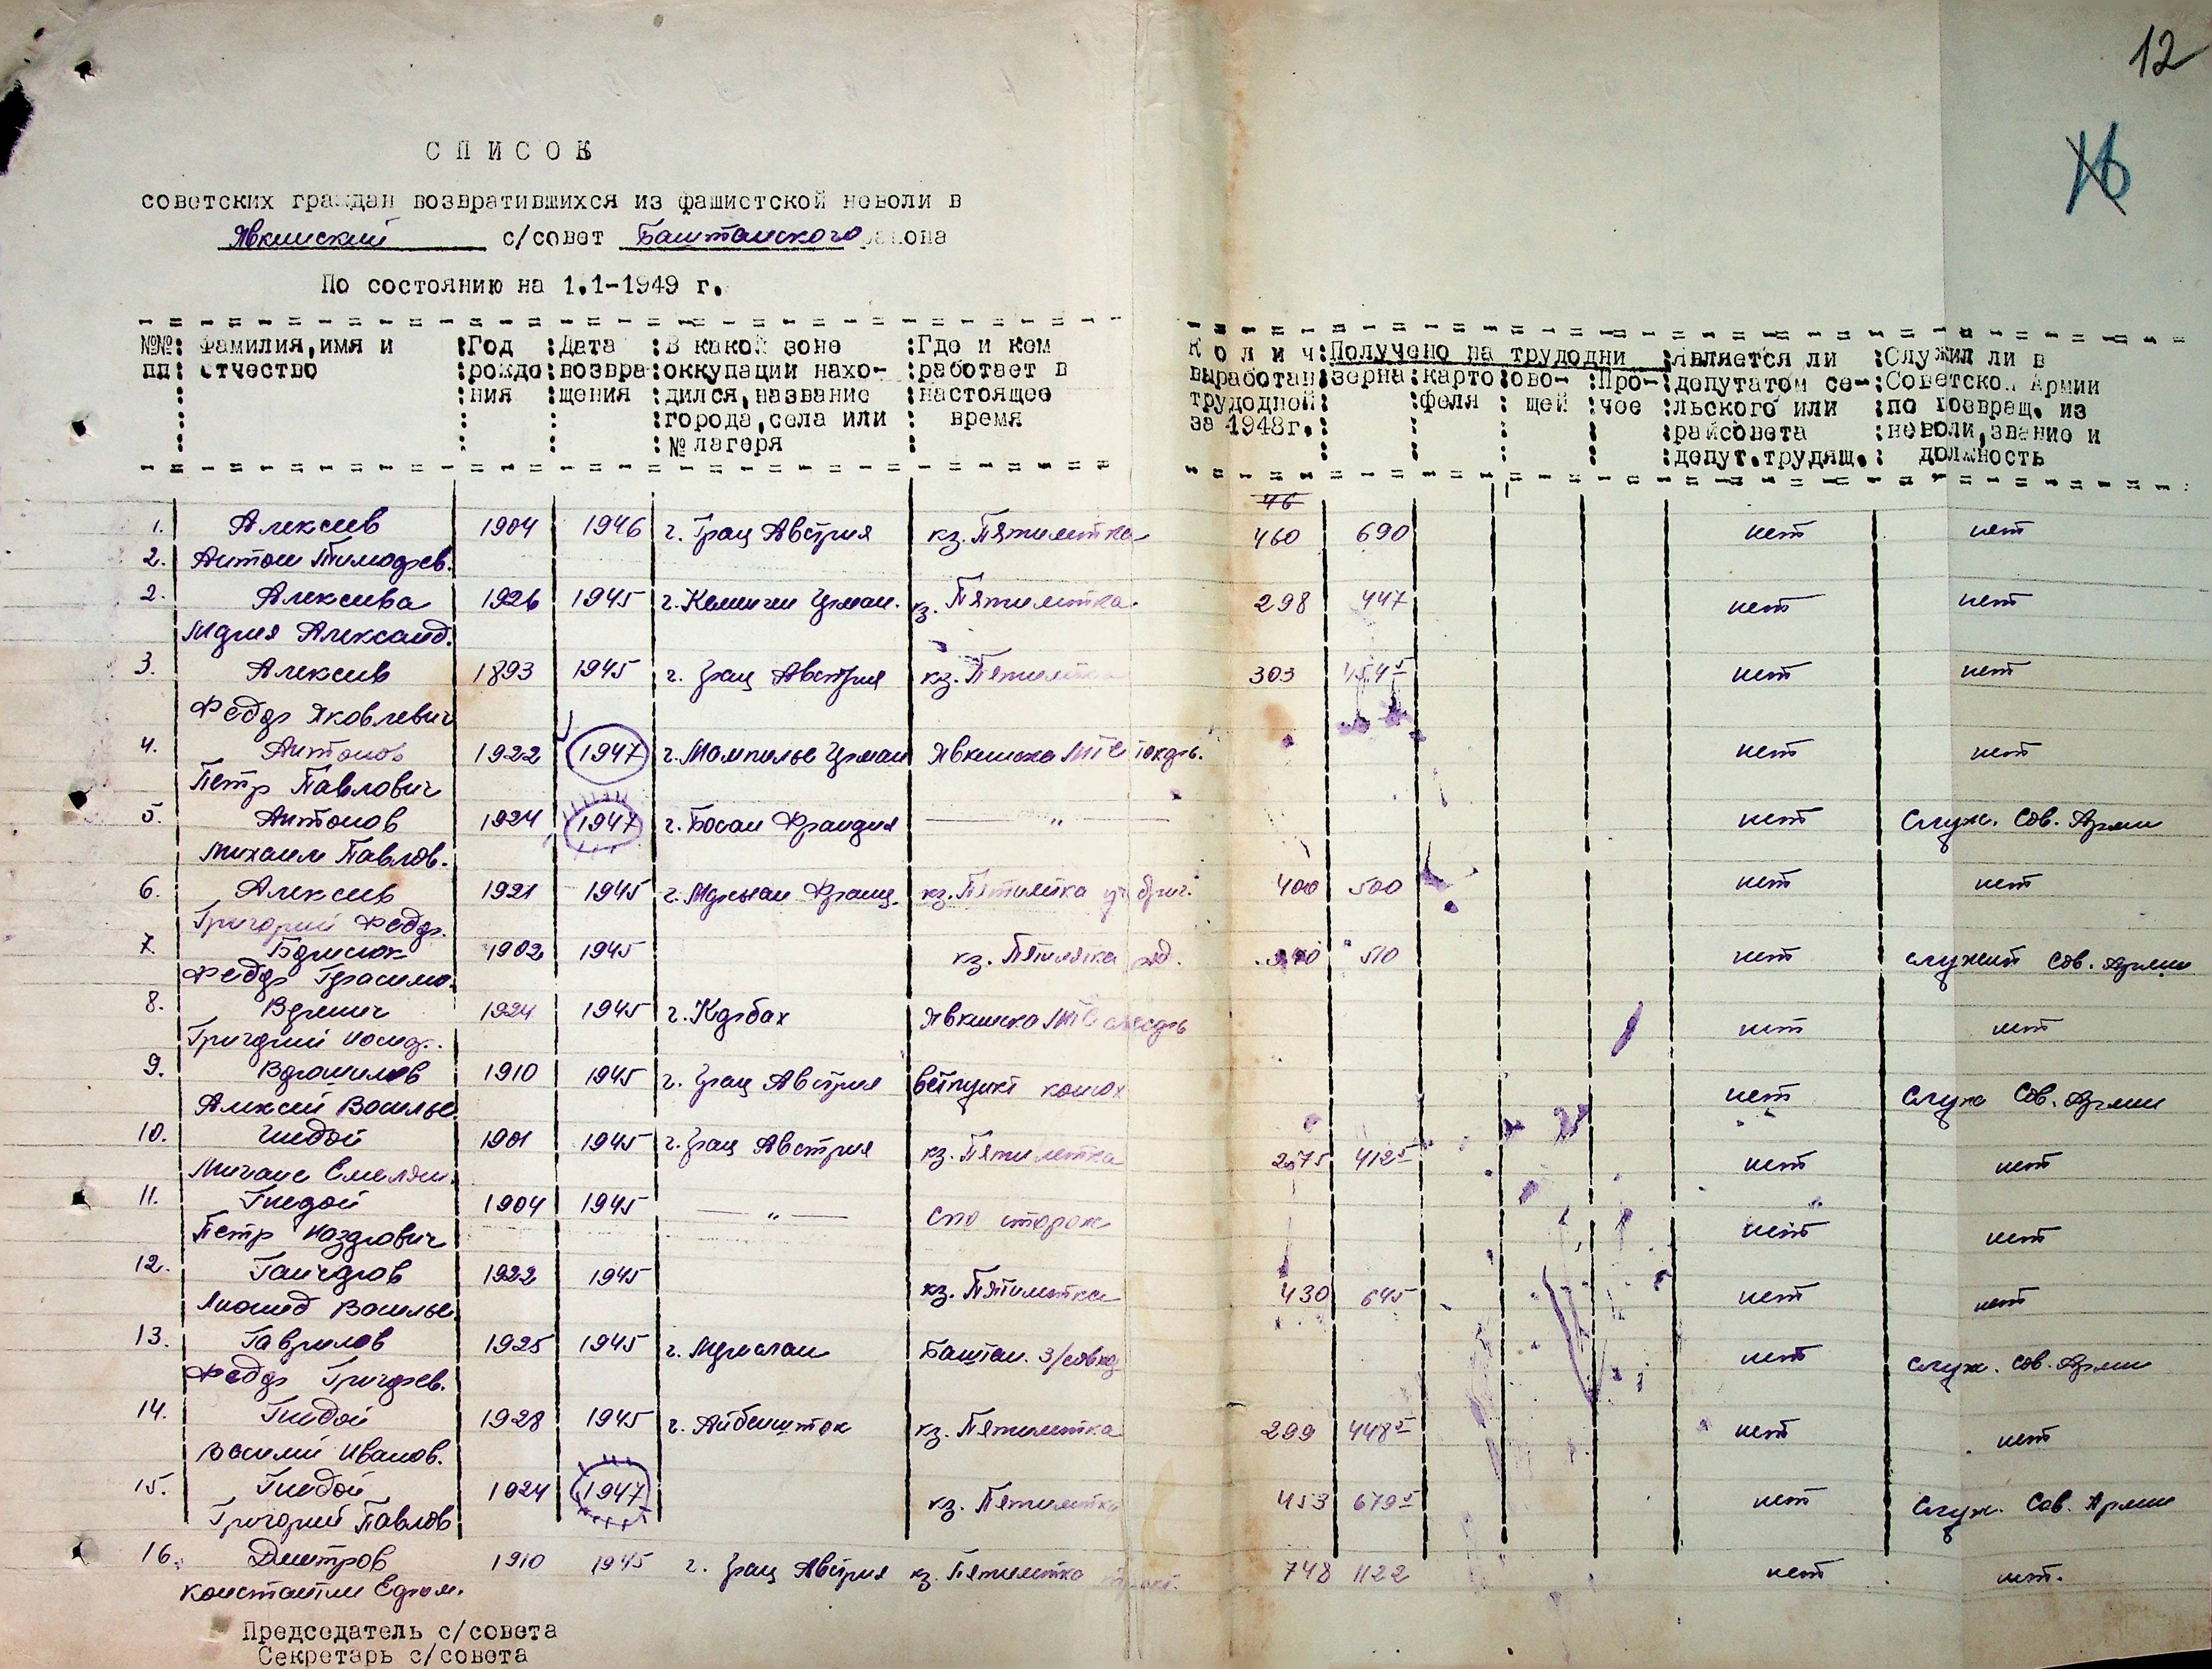 12
16
СПИСОК
советских граждан возвратившихся из фашистской неволи в
Явкинский с/совет Баштанского района
По состоянию на 1.1-1949 г.
№№ пп : Фамилия, имя и отчество : Год рождения : Дата возвращения : В какой зоне оккупации находился, название города, села или № лагеря : Где и кем работает в настоящее время : Колич выработан трудодней за 1948г. : Получено на трудодни : зерна : картофеля : овощей : Прочее : Является ли депутатом сельского или райсовета депут. трудящ. : Служил ли в Советской Армии по возвращ. из неволи, звание и должность
46
1. Алексив 1904 1946 г. Грац Австрия кз. Пятилетка 460 690 нет нет
2. Антон Тимофеев.
2. Алексива 1926 1945 г. Герман. кз. Пятилетка 298 447 нет нет
Мария Александ.
3. Алексив 1893 1945 г. Грац Австрия кз. Пятилетка 303 454 5 нет нет
Федор Яковлевич
4. Антонов 1922 1947 г. Герман Явкинска МТС токарь. нет нет
Петр Павлович
5. Антонов 1924 1947 г. Франция — " — нет Служ. Сов. Арми
Михаил Павлов.
6. Алексив 1921 1945 г. Франц. кз. Пятилетка бриг. 400 500 нет нет
Григорий Федор.
7. Борисюк 1902 1945 кз. Пятилетка 510 нет служит Сов. Армии
Федор Герасимо.
8. 1924 1945 г. Корбах Явкинска МТС слесарь нет нет
Григорий Иосиф.
9. Ворошилов 1910 1945 г. Грац Австрия ветпункт конюх нет Служ Сов. Армии
Алексей Василье.
10. Гнедой 1901 1945 г. Грац Австрия кз. Пятилетка 275 412 5 нет нет
Емельян.
11. Гнедой 1904 1945 — " — сторож нет нет
Петр
12. 1922 1945 кз. Пятилетка 430 645 нет нет
Леонид Василье.
13. Гаврилов 1925 1945 г. Баштан. з/совхоз нет служ. Сов. Армии
Федор Григорев.
14. Гнедой 1928 1945 г. Айбеншток кз. Пятилетка 299 448 5 нет нет
Василий Иванов.
15. Гнедой 1924 1947 кз. Пятилетка 453 679 5 нет Служ. Сов. Армии
Григорий Павлов
16. Дмитров 1910 1945 г. Грац Австрия кз. Пятилетка 748 1122 нет нет.
Константин Ефром.
Председатель с/совета
Секретарь с/совета